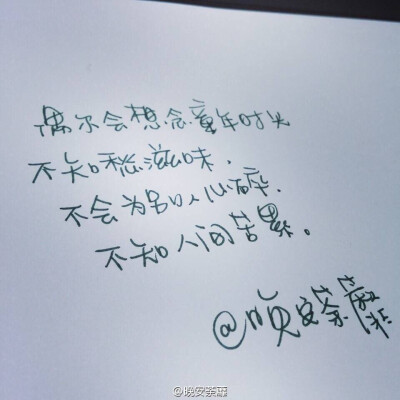 偶尔会想念童年时光
不知愁滋味.
不会为别人心碎.
不知人间苦累。
@晚安荼蘼
@晚安荼蘼